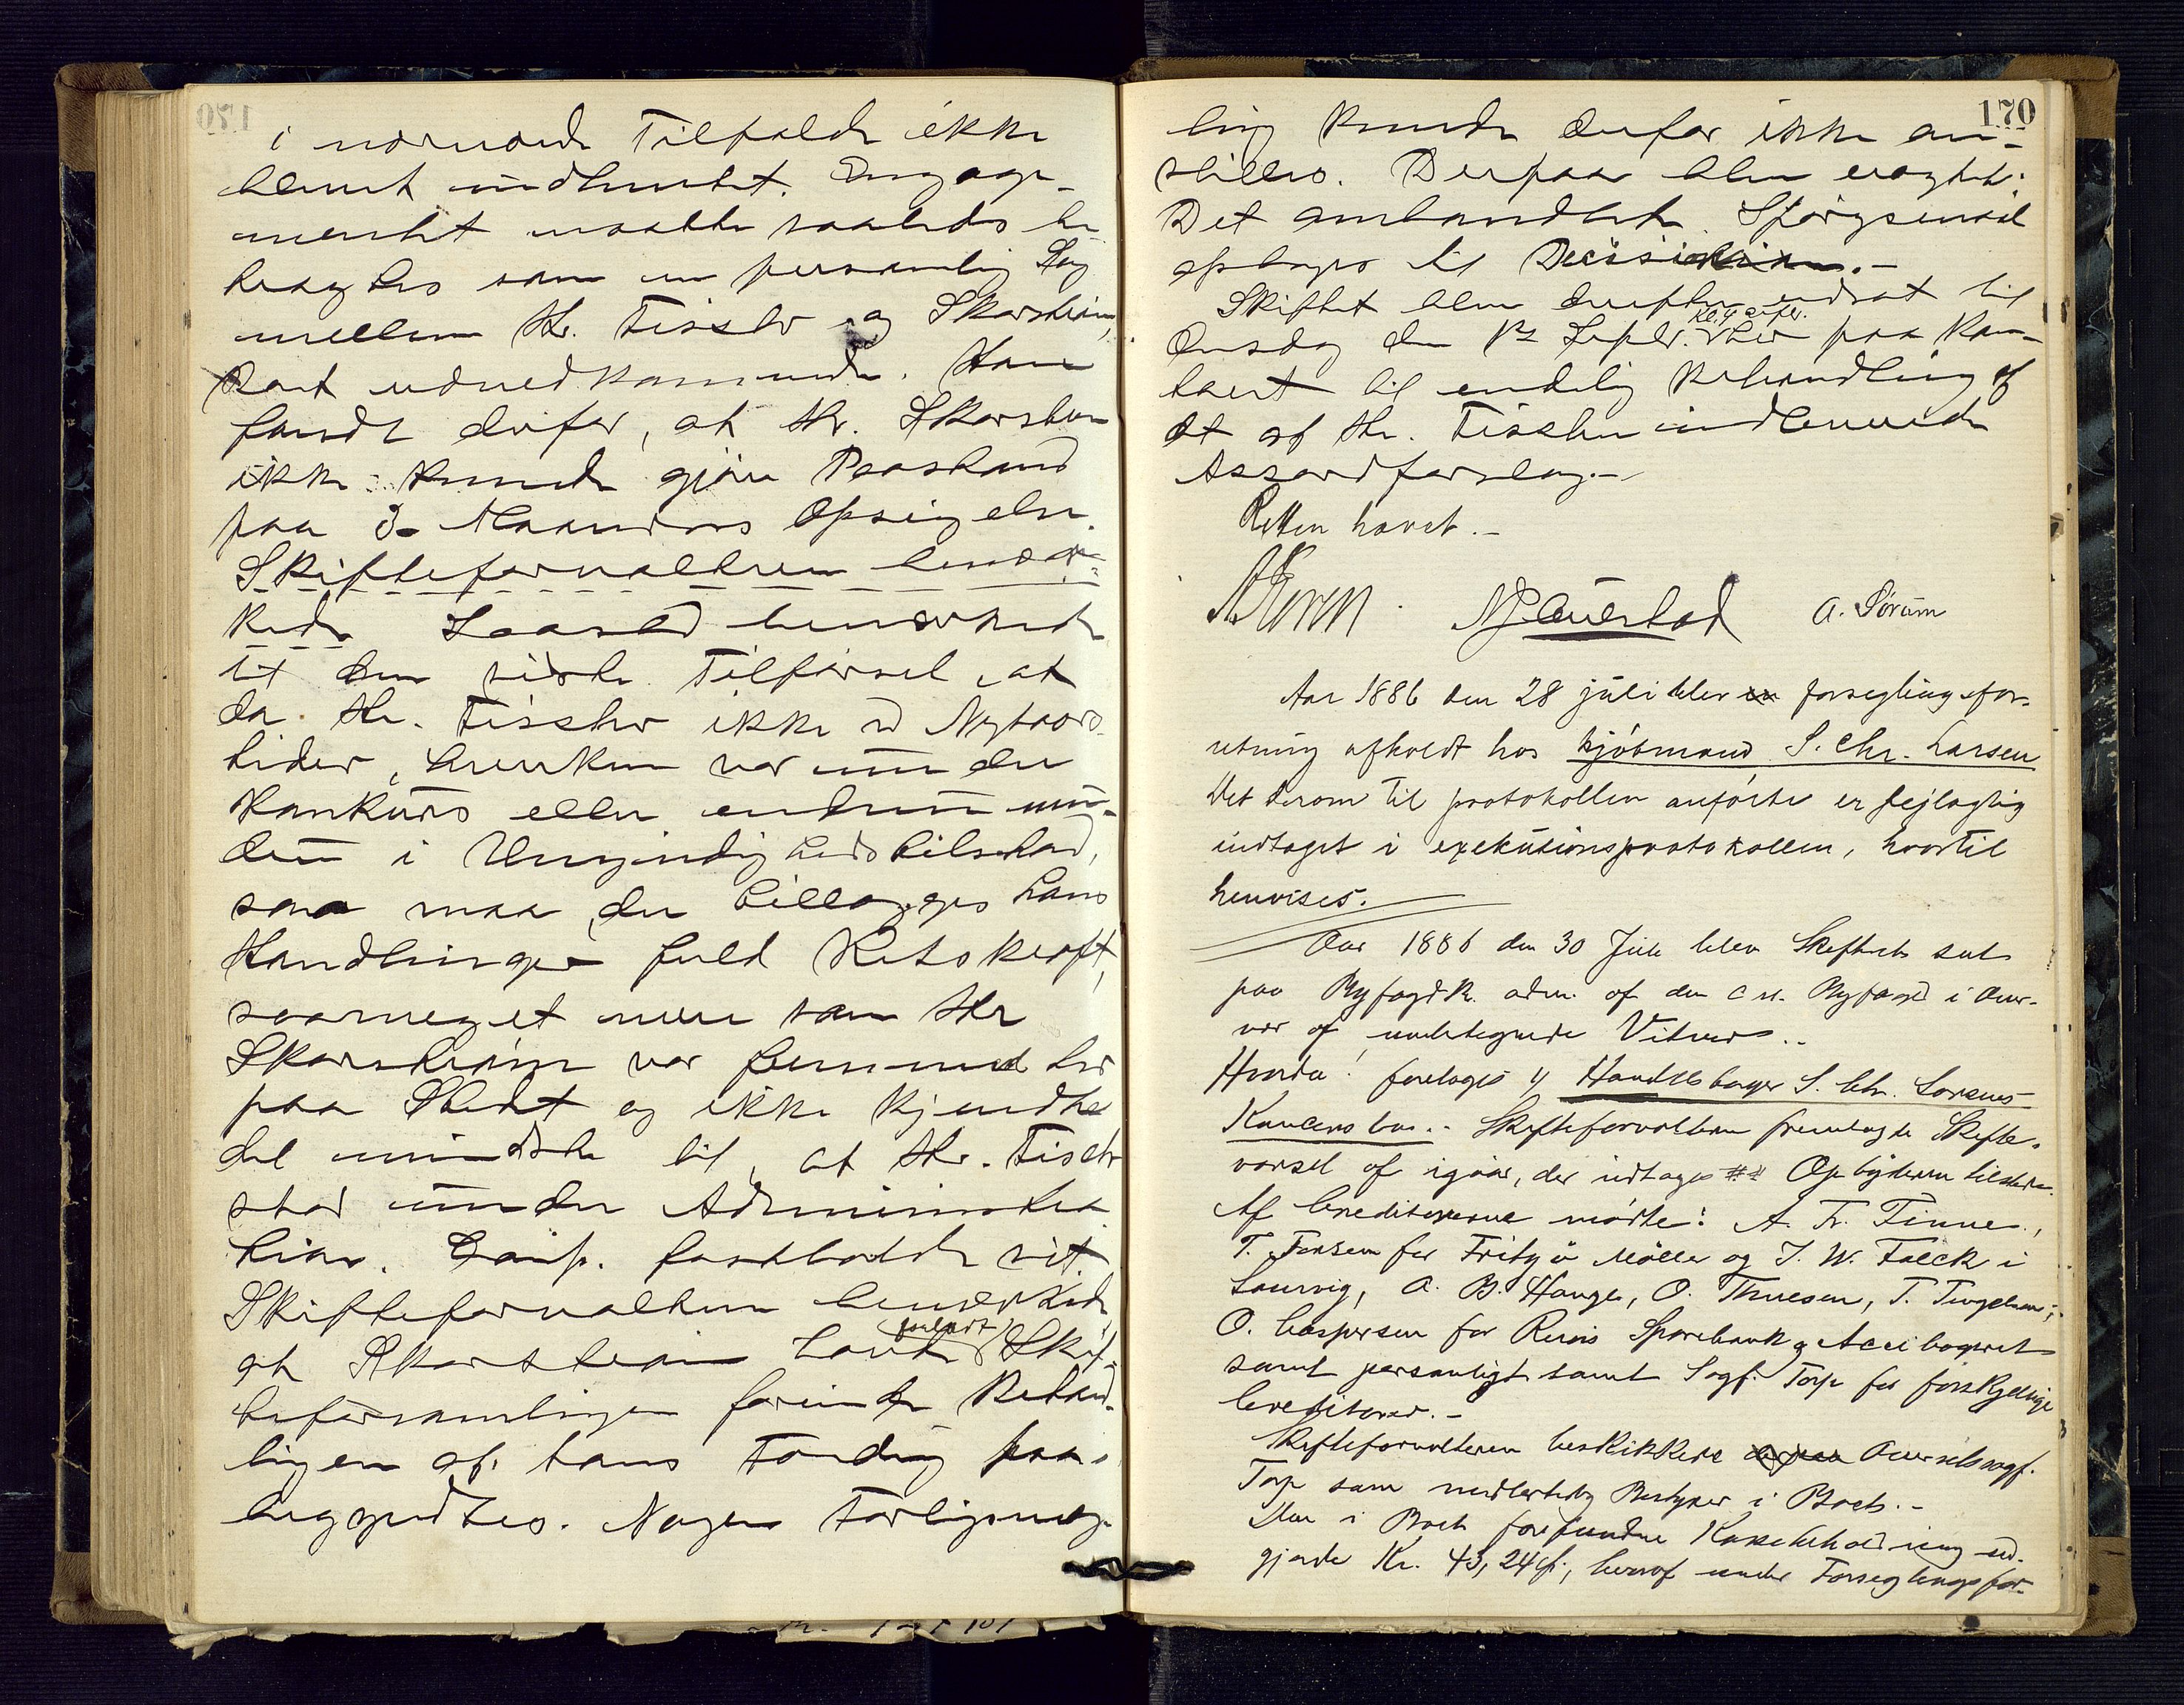 i nærværende Tilfælde ikke
blevet indhentet. Engage-
mentet maatte saaledes be-
tragtes som en personlig Sag
mellem Hr. Fischer og Skarstein,
Boet uvedkommende. Han
fandt derfor, at Hr. Skarstein
ikke kunde gjøre Paastand
paa 3 Maaneders Opsigelse.
Skifteforvalteren bemær-
kede Laasted bemærkede
til den sidste Tilførsel, at
da Hr. Fischer ikke ved Nytaars
tider, hverken var under
Konkurs eller endnu min-
dre i Umyndighedstilstand,
saa maa der tillægges hans
Handlinger fuld Retskraft,
saameget mere som Hr
Skarstein var fremmed her
paa Stedet og ikke kjendte
det mindste til, at Hr. Fischer
stod under Administra
tion. Torp. fastholdt sit.
Skifteforvalteren bemærkede,
at Skarstein havde forladt Skif-
teforsamlingen forinden Behand-
lingen af hans Fordring paa-
begyndtes. Nogen Forligsmæg-
170
ling kunde derfor ikke an-
stilles. Derpaa blev eragtet:
Det omhandlede Spørgsmaal
optages til Decision.-
Skiftet blev derefter udsat til
Onsdag den 1ste Septbr. Kl. 4 efter. her paa Kon-
toret til endelig Behandling af
det af Hr. Fischer indleverede
Accordforslag.-
Retten hævet.-
NJ. Auestad A. Sørum
Aar 1886 den 28 juli blev en forseglingsfor-
retning afholdt hos kjøbmand S. Chr. Larsen
Det derom til protokollen anførte er fejlagtig
indtaget i exekutionsprotokollen, hvortil
henvises.
Aar 1886 den 30 Juli blev Skifteret sat
paa Byfogdk. adm. af den c st. Byfoged i Over-
vær af undertegnede Vitner..
Hvorda! foretoges Handelsborger S. Chr. Larsens
Konkursbo.- Skifteforvalteren fremlagde Skifte-
varsel af igaar, der indtages ## Opbyderen tilstede.
Af Creditorerne mødte: A. Fr. Finne,
T. Jensen for Fritzøe Møller og J. W. Falck i
Laurvig, A. B. Hauge, O. Thuesen, T. Tengelsen,
O. Caspersen for Sparebank og
samt personligt samt Sagf. Torp for forskjellige
Creditorer.-
Skifteforvalteren beskikkede derpaa Overretssagf.
Torp som midlertidig Bestyrer i Boet.-
Den i Boet forefundne Kassebeholdning ud-
gjorde Kr. 43,24 , hvoraf under Forseglingsfor-